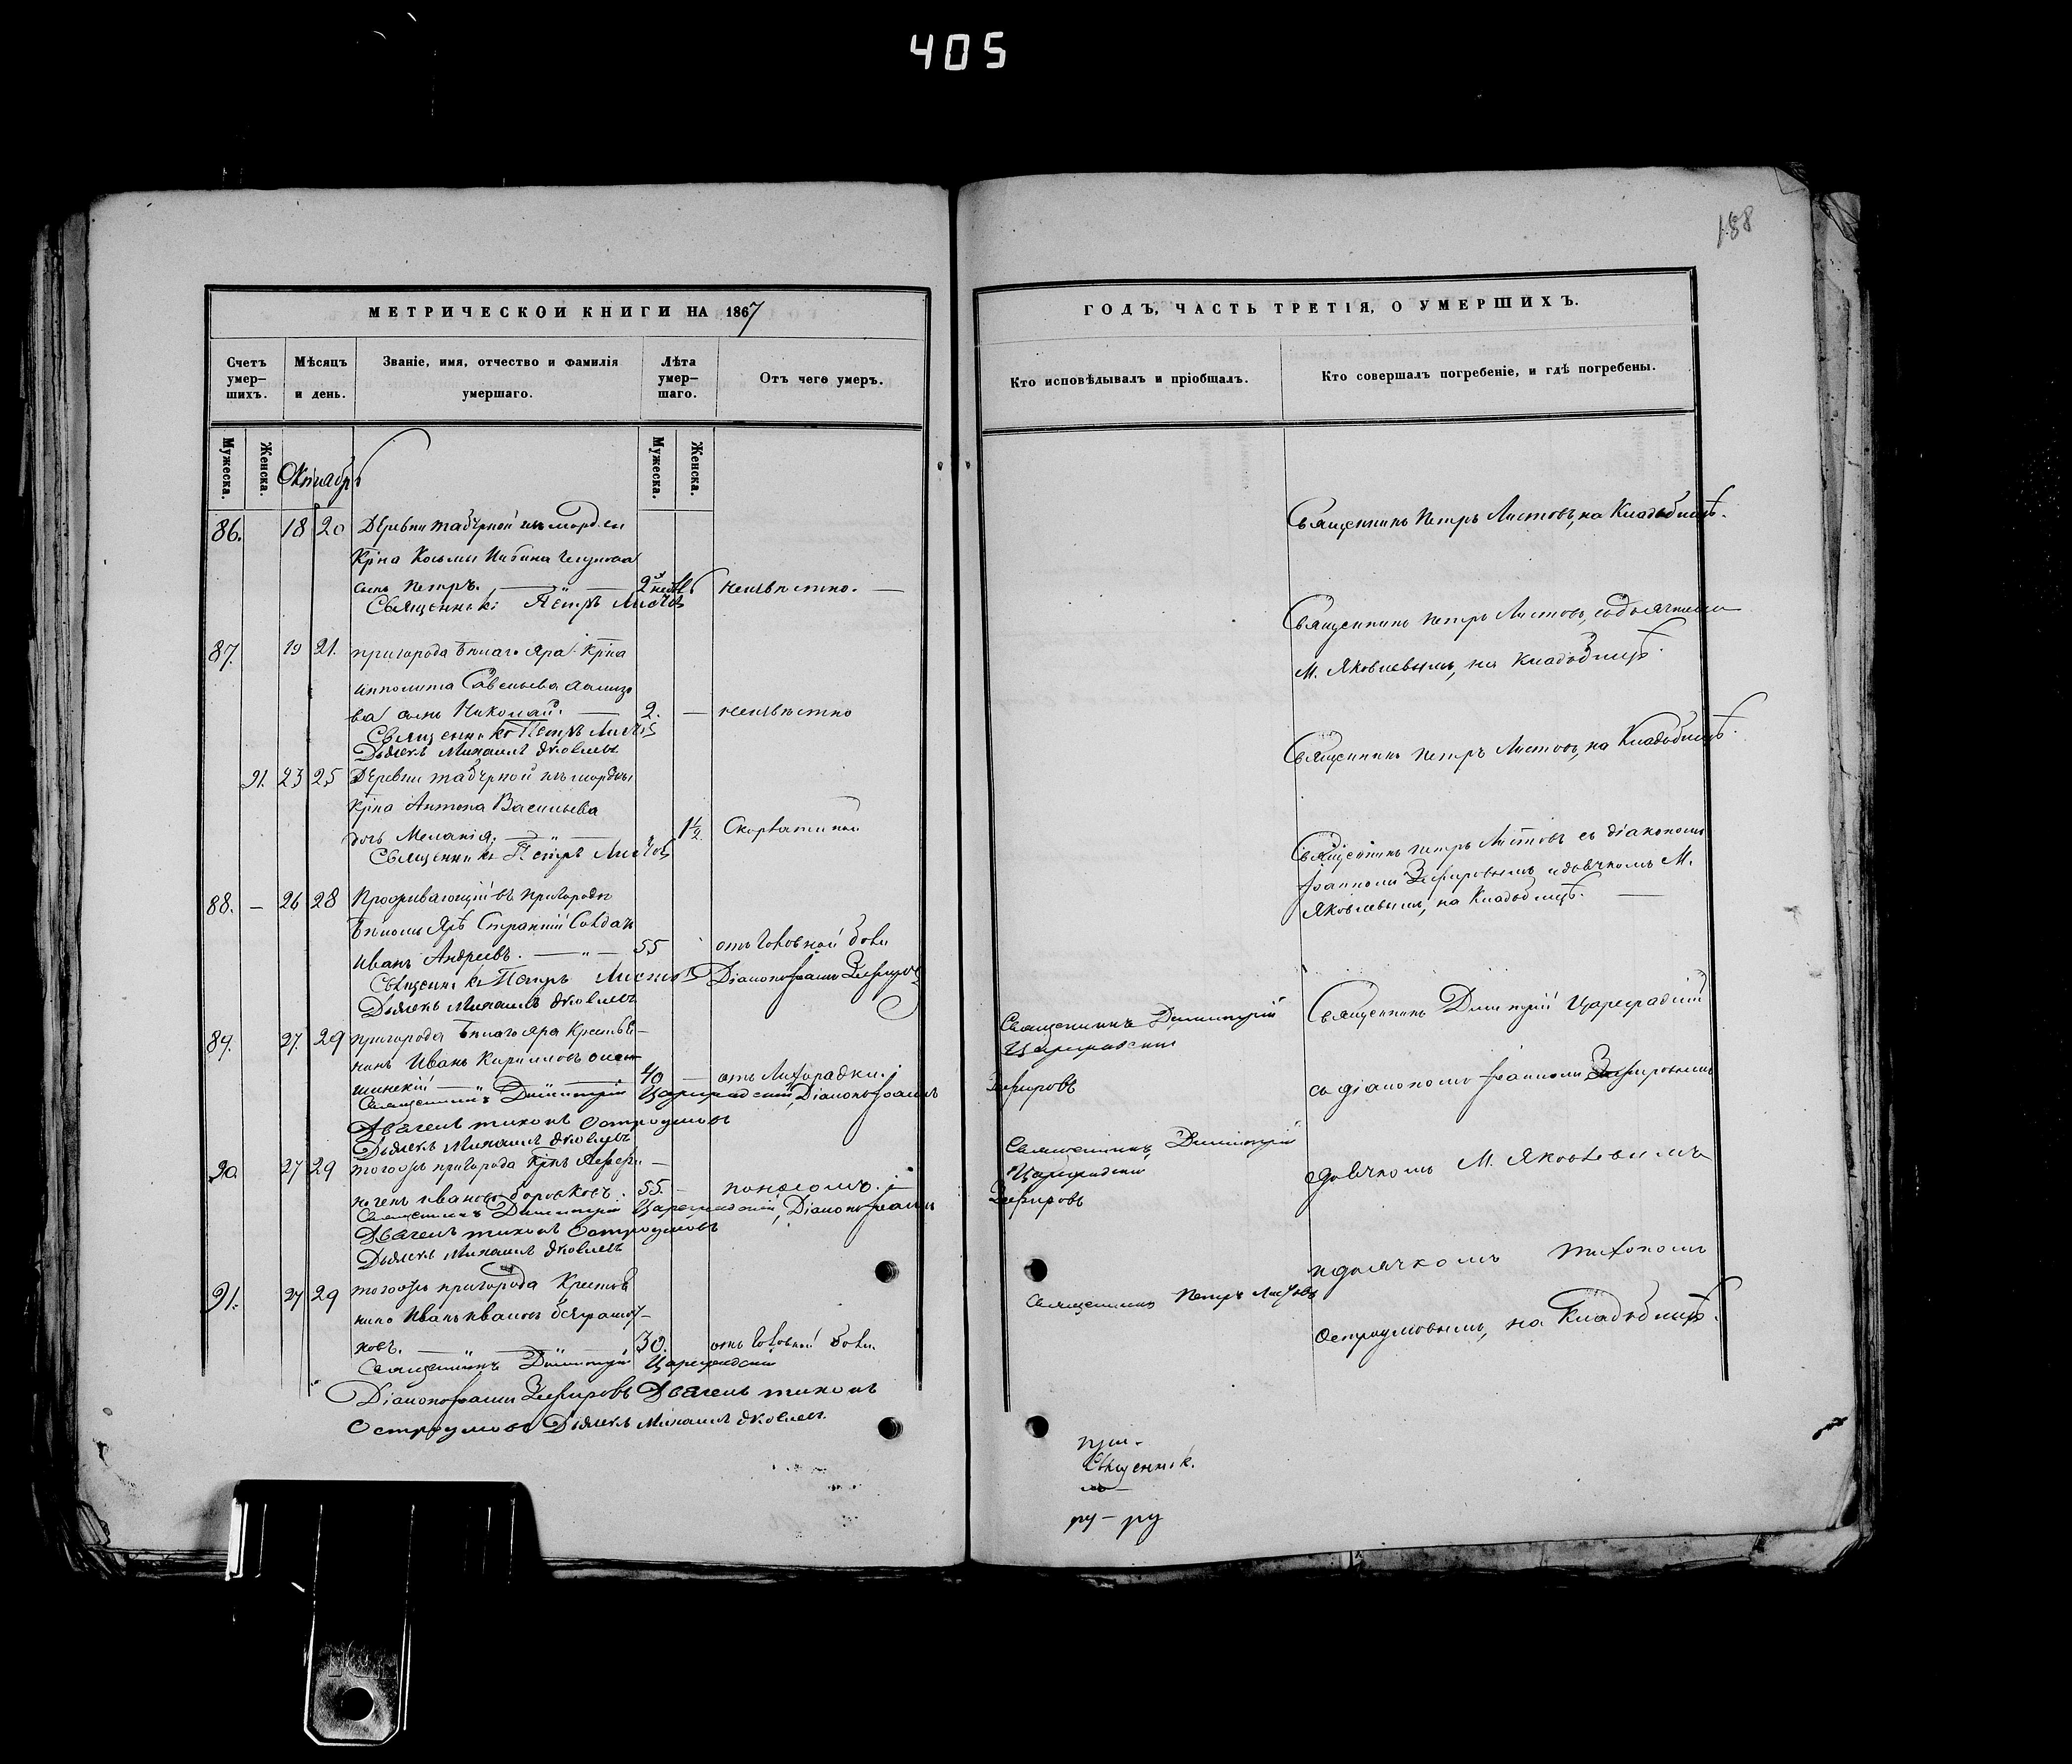 405
188
МЕТРИЧЕСКОЙ КНИГИ НА 1867
Счетъ умер-шихъ.
Мѣсяцъ и день.
Званіе, имя, отчество и фамилія умершаго.
Лѣта умер-шаго.
Отъ чего умеръ.
Мужеска.
Женска.
Октябрь
Мужеска.
Женска.
86. 18 20 Деревни
Крна Козьмы
сынъ Петръ. 2 неизвѣстно.
Священникъ Петръ Листовъ
87. 19 21. пригорода Бѣлаго Яра Крна
Ипполита Савельева
ва сынъ Николай 2. — неизвѣстно
Священникъ Петръ Листовъ
Дьячекъ Михаилъ Яковлевъ
91. 23 25 Деревни
Крна Антона Васильева
дочь Меланія 1½
Священникъ Петръ Листовъ
88. — 26 28 Проживающій въ пригородѣ
Бѣломъ Ярѣ Солдатъ
Иванъ Андреевъ. 55 отъ головной боли
Священникъ Петръ Листовъ Діаконъ Іоаннъ Зефировъ
Дьячекъ Михаилъ Яковлевъ
89. 27. 29 пригорода Бѣлаго Яра Крестья-
нинъ Иванъ Кирилловъ
40 отъ Лихорадки.
Священникъ Димитрій Цареградскій, Діаконъ Іоаннъ
Дьячекъ Тихонъ Остроумовъ
Дьячекъ Михаилъ Яковлевъ
90. 27 29 тогожъ пригорода Крнъ
Ивановъ Боровковъ. 55. — поносомъ.
Священникъ Димитрій Цареградскій, Діаконъ Іоаннъ
Дьячекъ Тихонъ Остроумовъ
Дьячекъ Михаилъ Яковлевъ
91. 27 29 тогожъ пригорода Крестья
нинъ Иванъ Ивановъ
30. отъ головной боли.
Священникъ Димитрій Цареградскій
Діаконъ Іоаннъ Зефировъ Дьячекъ Тихонъ
Остроумовъ Дьячекъ Михаилъ Яковлевъ.
ГОДЪ, ЧАСТЬ ТРЕТІЯ, О УМЕРШИХЪ.
Кто исповѣдывалъ и пріобщалъ.
Кто совершалъ погребеніе, и гдѣ погребены.
Священникъ Петръ Листовъ, на Кладбищѣ.
Священникъ Петръ Листовъ, съ дьячкомъ
М. Яковлевымъ, на Кладбищѣ.
Священникъ Петръ Листовъ, на Кладбищѣ.
Священникъ Петръ Листовъ съ діакономъ
Іоанномъ Зефировымъ и дьячкомъ М.
Яковлевымъ, на Кладбищѣ.
Священникъ Димитрій
Цареградскій
Зефировъ
Священникъ Димитрій Цареградскій
съ діакономъ Іоанномъ Зефировымъ
Священникъ Димитрій
Цареградскій
Зефировъ
дьячкомъ М. Яковлевымъ
и дьячкомъ Тихономъ
Священникъ Петръ Листовъ
Остроумовымъ, на Кладбищѣ.
Священник.
ру – ру